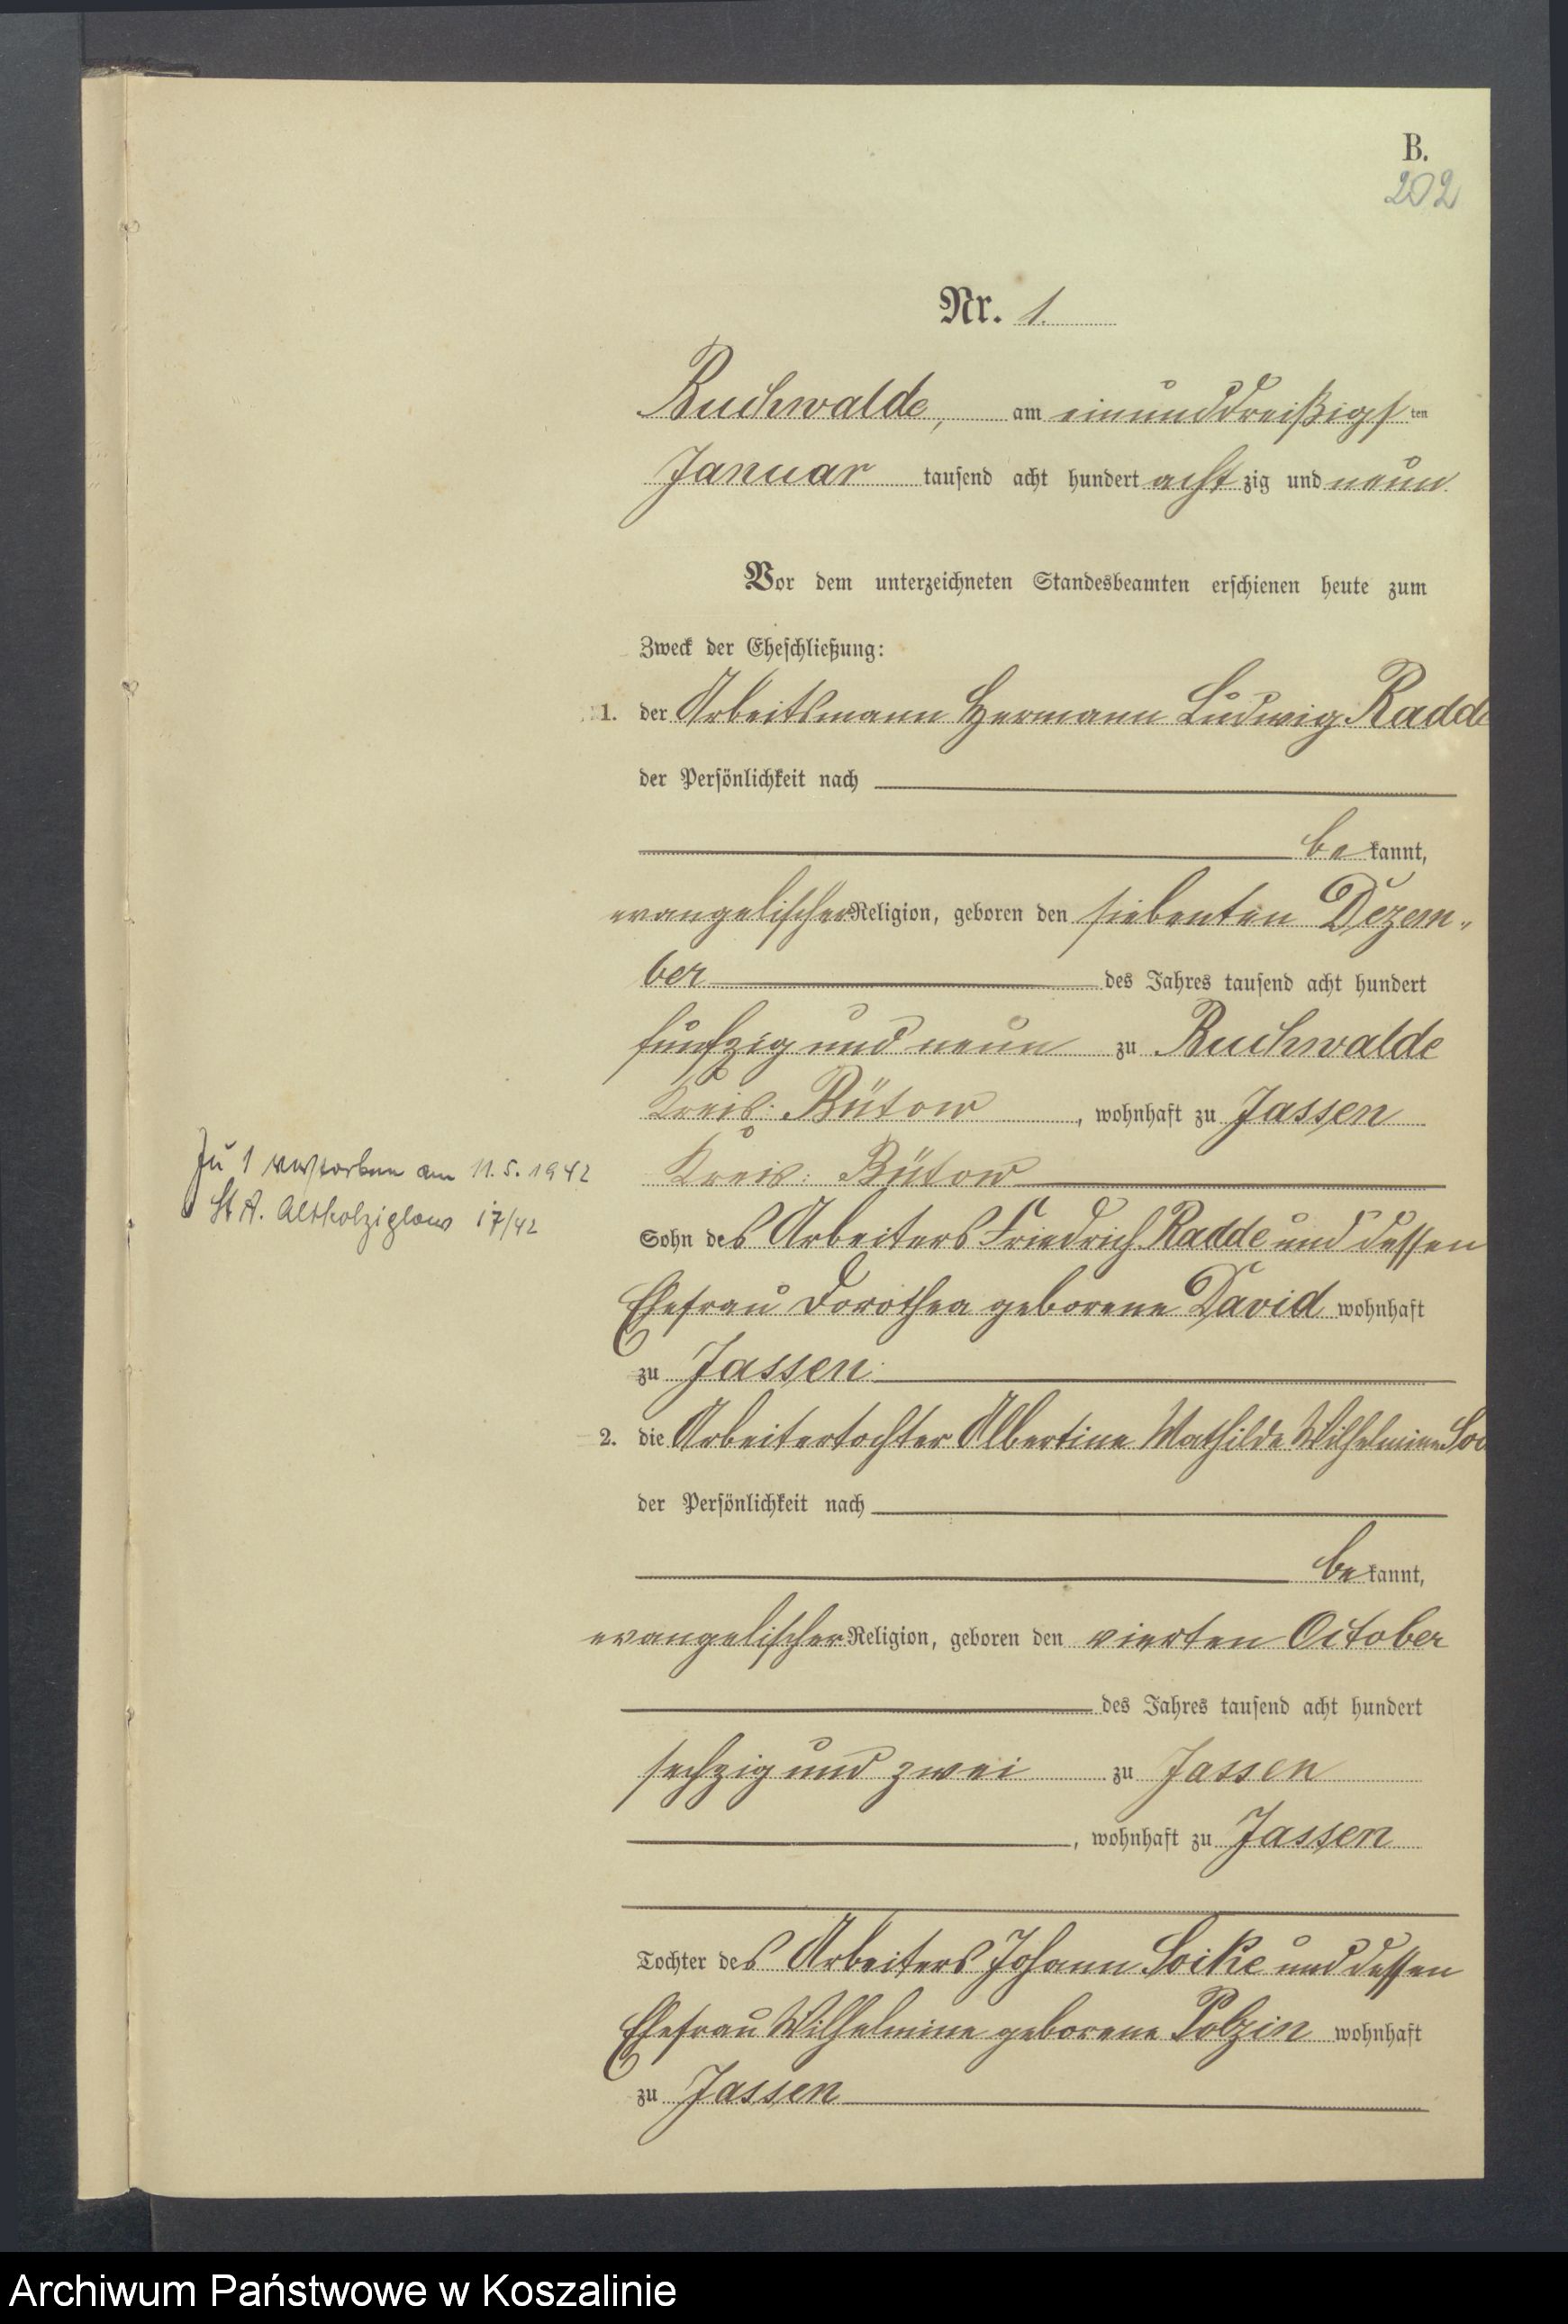 B.
202
Nr. 1.
Buchwalde, am einunddreißigsten
Januar tausend acht hundert achtzig und neun
Vor dem unterzeichneten Standesbeamten erschienen heute zum
Zweck der Eheschließung:
1. der Arbeitsmann Hermann Ludwig Radde
der Persönlichkeit nach
bekannt,
evangelischer Religion, geboren den siebenten Dezem-
ber des Jahres tausend acht hundert
fünfzig und neun zu Buchwalde
Kreis: Bütow, wohnhaft zu Jassen
Zu 1 verstorben am 11.5.1942
Kreis: Bütow
St A. 17/42
Sohn des Arbeiters Friedrich Radde und dessen
Ehefrau Dorothea geborene David wohnhaft
zu Jassen.
2. die Arbeitertochter Albertine Mathilde Wilhelmine
der Persönlichkeit nach
bekannt,
evangelischer Religion, geboren den vierten October
des Jahres tausend acht hundert
sechzig und zwei zu Jassen
, wohnhaft zu Jassen
Tochter des Arbeiters Johann Soike und dessen
Ehefrau Wilhelmine geborene Polzin wohnhaft
zu Jassen
Archiwum Państwowe w Koszalinie